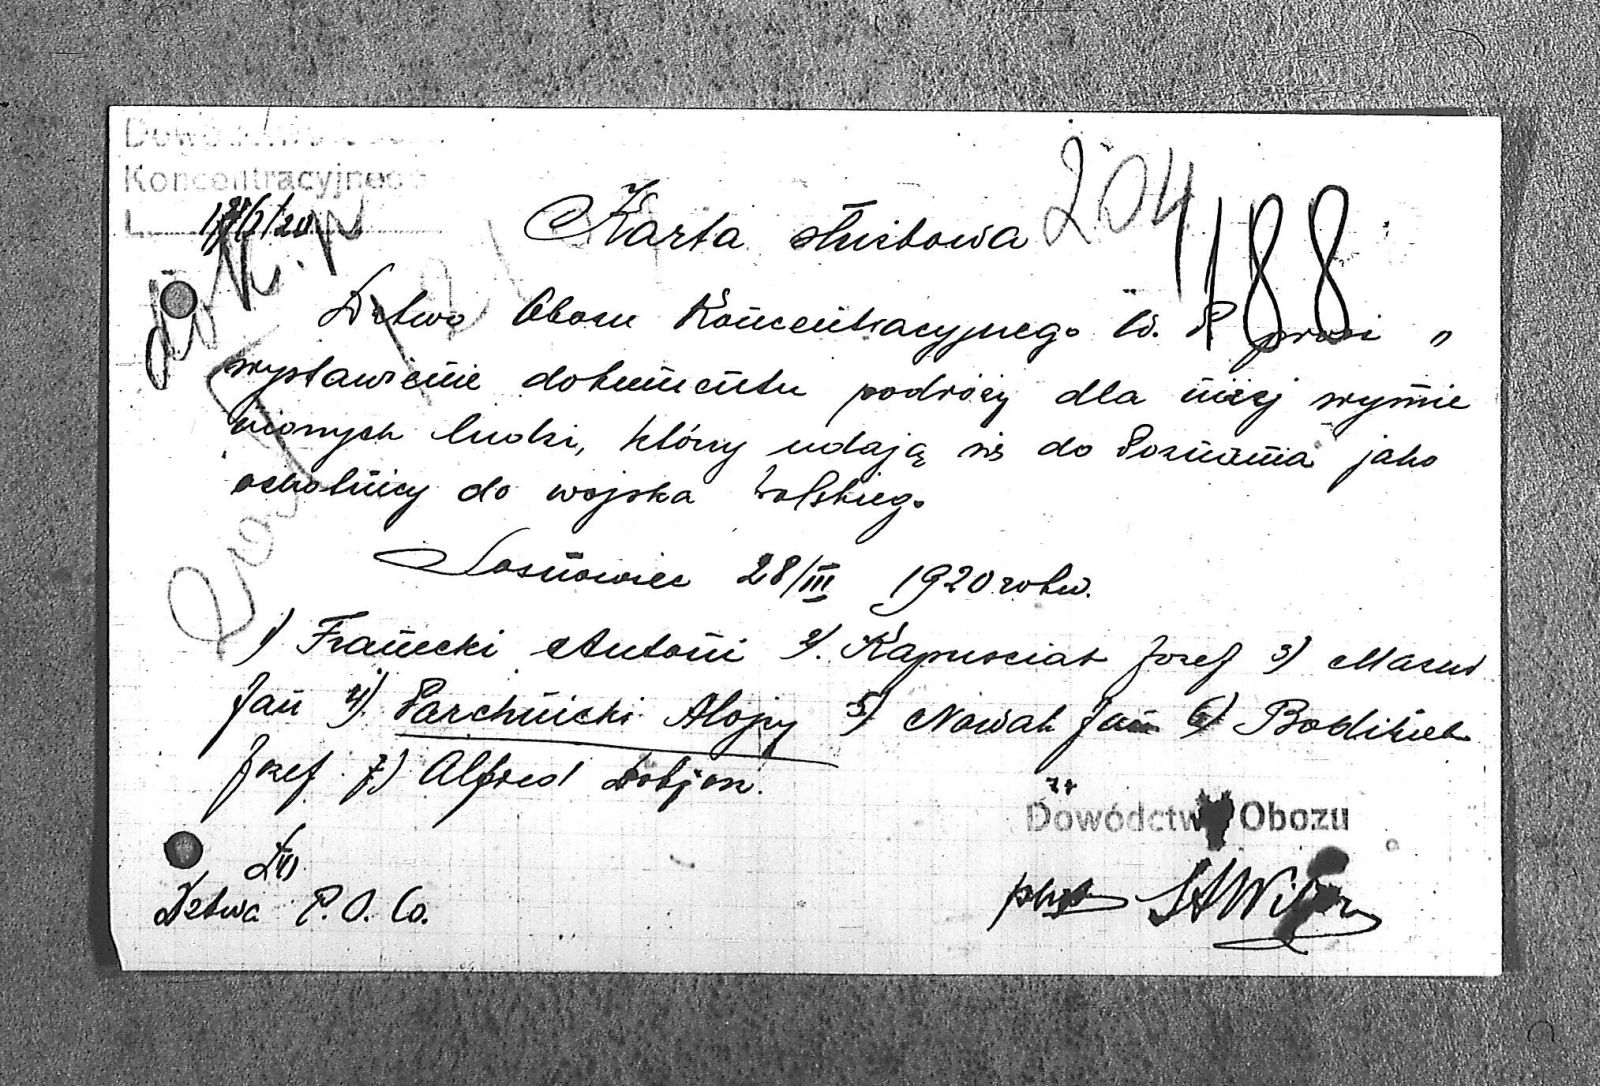 Koncentracyjnego
204
188
Karta służbowa
Dztwo Obozu Koncentracyjnego W. P prosi o
wystawienie dokumentu podróży dla niżej wymie
nionych ludzi, którzy udają się do Poznania jako
ochotnicy do wojska Polskiego
Sosnowiec 28/III 1920 roku.
1) Franecki Antoni 2). Kapuściak Jozef 3) Mazur
Jan 4) Parchnicki Alojzy 5) Nowak Jan 6)
Jozef 7) Alfred
Dowództwo Obozu
Dztwa P. O. W.